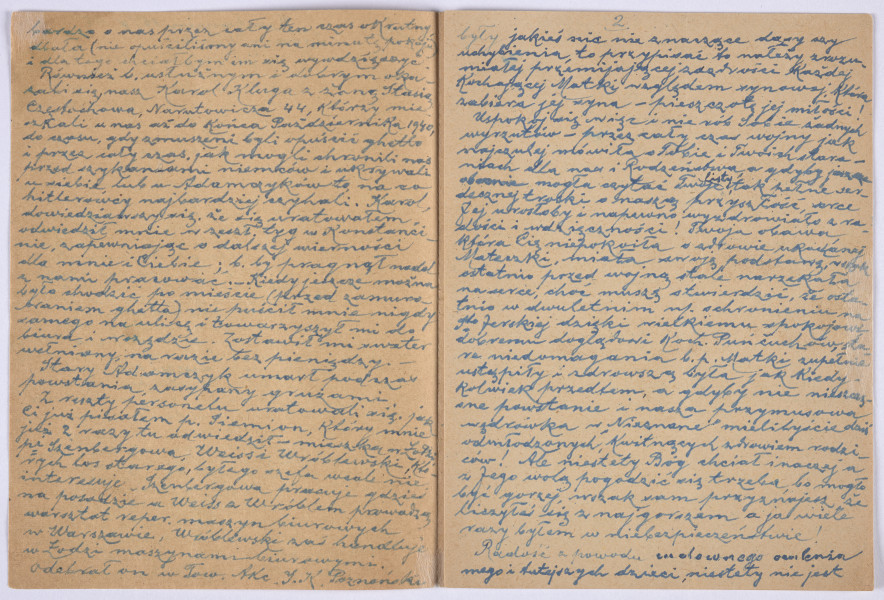 bardzo o nas przez cały ten czas okrutny
dbała (nie opuściliśmy ani na minutę pokoju
i dlatego chciałbym im się wywdzięczyć
Również b. usłużnym i dobrym oka-
zali się nasz Karol Kluga z żoną Stasią
Częstochowa, Narutowicza 44, którzy mie-
szkali u nas aż do końca Października 1940,
do czasu, gdy zmuszeni byli opuścić ghetto
i przez cały czas, jak mogli chronili nas
przed szykanami niemków i ukrywali
u siebie, lub u Adamczyków to na co
hitlerowcy najbardziej czyhali. Karol
dowiedziawszy się, że się uratowałem,
odwiedził mnie w zeszł. tyg. w Konstanci-
nie, zapewniając o dalszej wierności
dla mnie i Ciebie; b. by pragnął nadal
z nami pracować. Kiedy jeszcze można
było chodzić po mieście (przed zamuro-
waniem ghetta) nie puścił mnie nigdy
samego na ulicę i towarzyszył mi do
biura i wszędzie. Zostawił mi sweter
wełniany, na razie bez pieniędzy.
Stary Adamczyk umarł podczas
powstania zasypany gruzami.
Z reszty personelu uratowali się, jak
Ci już pisałem p. Siemion, który mnie
już 2 razy tu odwiedził - mieszka w
p. Szenbergowa, Weiss i Wróblewski, któ-
rych los starego, byłego szefa wcale nie
interesuje. Szenbergowa pracuje gdzieś
na posadzie a Weiss z Wróblem prowadzą
warsztat reper. maszyn biurowych
w Warszawie; Wróblewski zaś handluje
w Łodzi maszynami biurowymi.
Odebrał on w Tow. Akc. I. K. Poznański
2.
były jakieś nic nie znaczące dąsy czy
uchybienia, to przypisać to należy zrozu-
miałej przemijającej zazdrości każdej
Kochającej Matki względem synowej, która
zabiera jej syna - pieszczotę jej miłości!
Uspokój się więc i nie rób Sobie żadnych
wyrzutów - przez cały czas wojny jak
najczulej mówiła o Tobie i Twoich stara-
niach dla nas i Rodzeństwa a gdyby jeszcze
obecnie mogła czytać Twój list, tak pełne ser-
decznej troski o naszą przyszłość, serce
Jej urosłoby i napewno wyzdrowiało z ra-
dości i wdzięczności! Twoja obawa
która Cię niepokoiła o zdrowie ukochanej
Mateczki, miała swoją podstawę, wszak
ostatnio przed wojną stale narzekała
na serce, choć muszę stwierdzić, że osta-
tnio w dwuletnim n/. schronieniu na
Święto Jerskiej dzięki wielkiemu spokojowi
dobremu doglądowi Koch. Puńciuchów
re niedomagania b.p. Matki zupełnie
ustąpiły i zdrowszą była jak kiedy-
kolwiek przedtem, a gdyby nie nieszczę-
sne powstanie i nasza przymusowa
wędrówka w Nieznane mielibyście dziś
odmłodzonych, kwitnących zdrowiem rodzi-
ców! Ale niestety Bóg chciał inaczej a
z Jego wolą pogodzić się trzeba, bo mogło
być gorzej, wszak sam przyznajesz, że
liczyłaś się z najgorszem a ja wiele
razy byłem w niebezpieczeństwie!
Radość z powodu cudownego ocalenia
mego i tutejszych dzieci, niestety nie jest